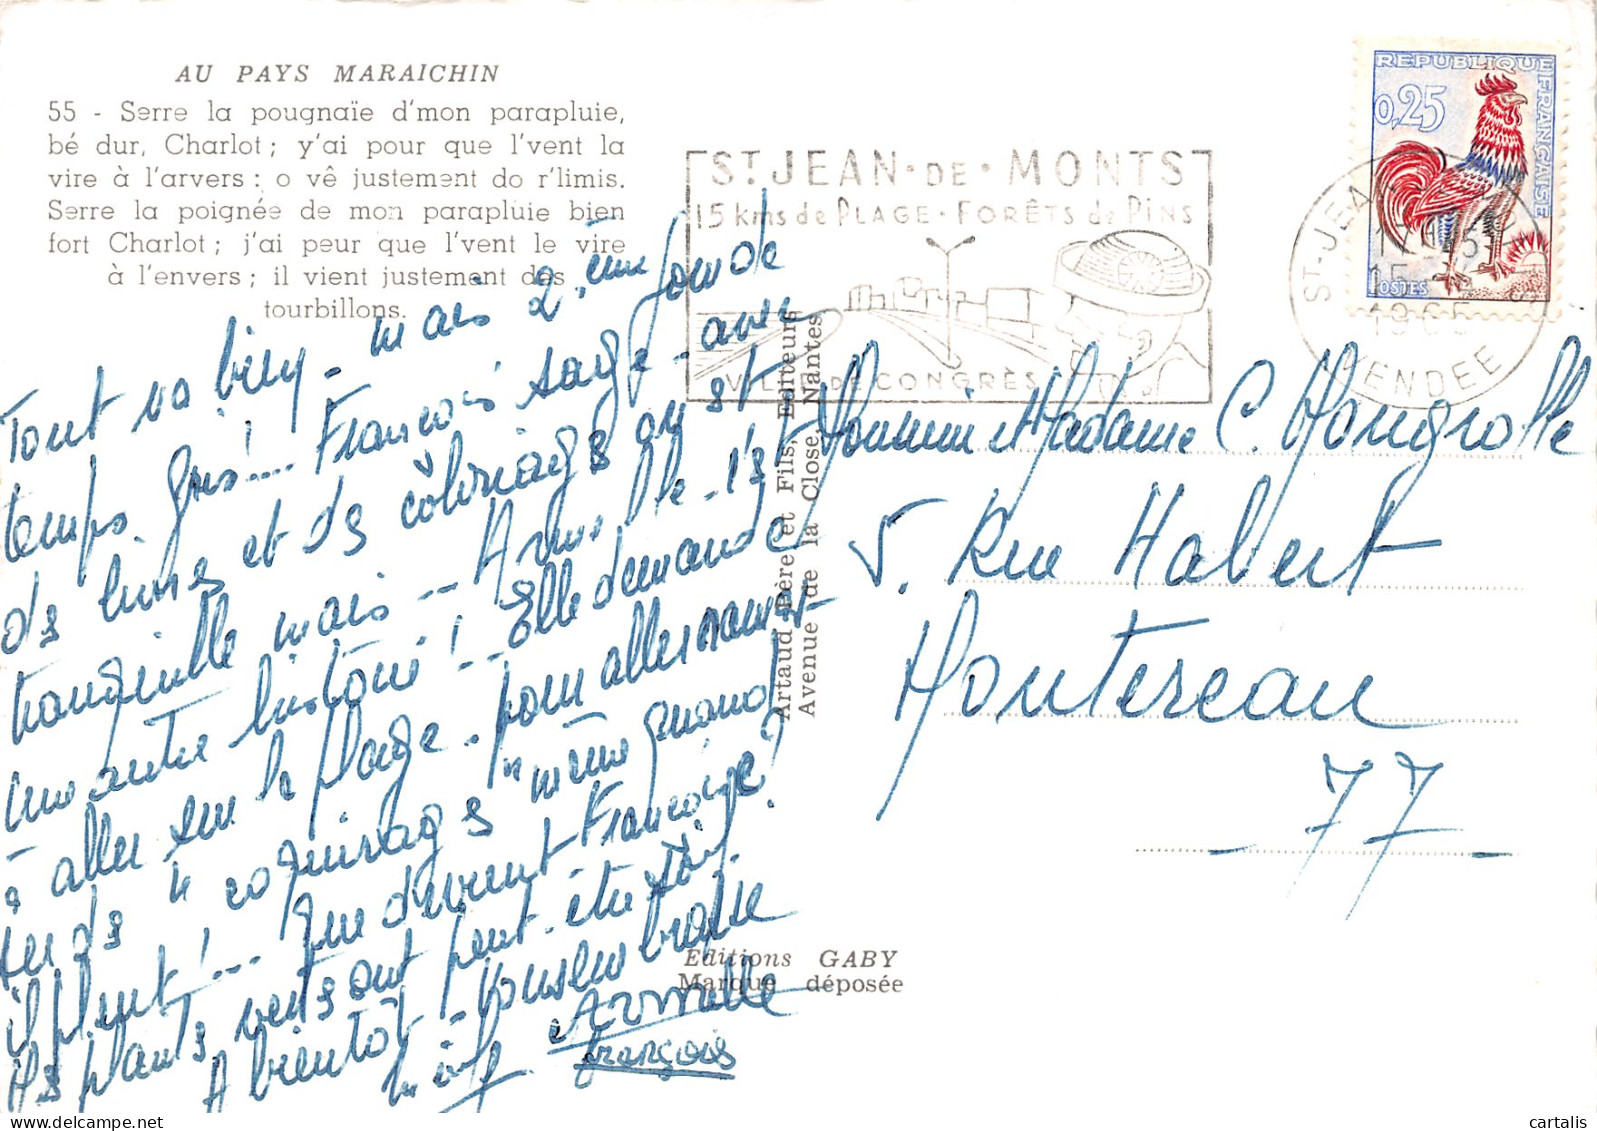 AU PAYS MARAICHIN
55 - Serre la pougnaïe d'mon parapluie,
bé dur, Charlot ; y'ai pour que l'vent la
vire à l'arvers : o vê justement do r'limis.
Serre la poignée de mon parapluie bien
fort Charlot ; j'ai peur que l'vent le vire
à l'envers ; il vient justement des
tourbillons.
Tout va bien - mais 2.ème fonde
temps gris !.... François sage - avec
des livres et des coloriages on est
tranquille mais -- Armelle - c'est
une autre histoire ! -- Elle demande
à aller sur la plage - pour aller ramas-
ser des "coquirages" même quand
il pleut !... Que devient Françoise ?
Les plants verts ont peut-être soif.
A bientôt - vous embrasse
Armelle
François
ST JEAN · DE · MONTS
15 kms de PLAGE · FORÊTS de PINS
VILLE DE CONGRÈS
REPUBLIQUE FRANÇAISE
0,25
POSTES
ST-JEAN
17H45
15
1965
VENDEE
Artaud Père et Fils, Editeurs
Avenue de la Close, Nantes
Monsieur et Madame C. Mougrolle
5. Rue Habert
Montereau
- 77 -
Editions GABY
Marque déposée
cartalis